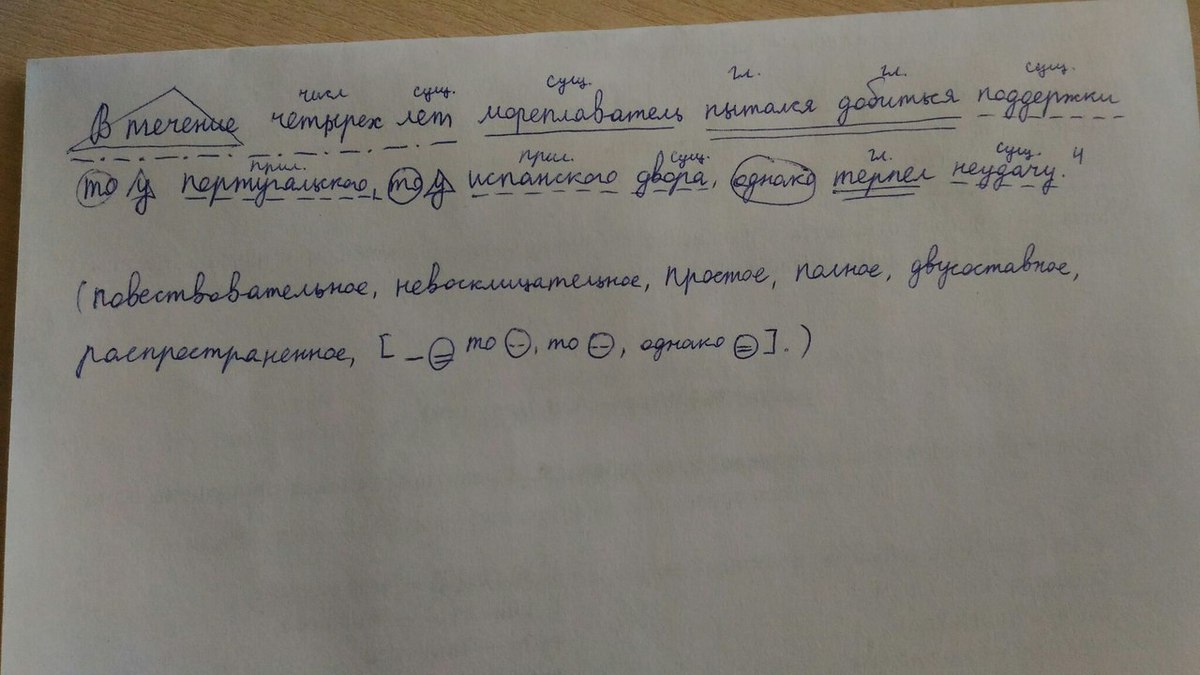 числ сущ. сущ. гл. гл. сущ.
В течение четырех лет мореплаватель пытался добиться поддержки
прил. прил. сущ. гл. сущ.
то у португальского, то у испанского двора, однако терпел неудачу. 4
(повествовательное, невосклицательное, простое, полное, двусоставное,
распространенное, [ то , то , однако ]. )